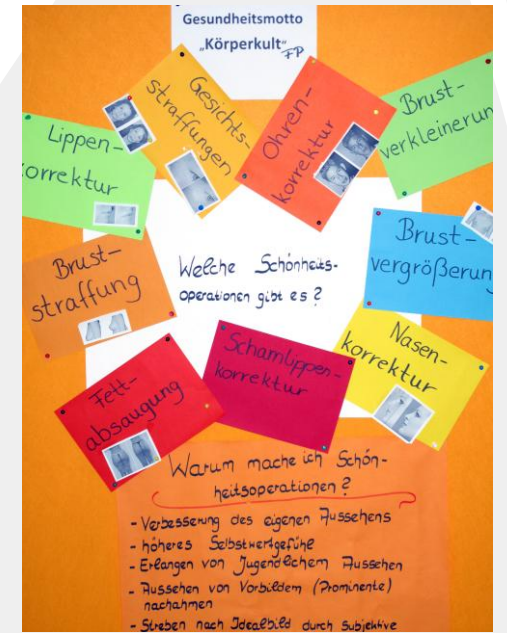 Gesundheitsmotto
„Körperkult“
FP
Gesichts-
straffungen
Ohren-
korrektur
Brust-
verkleinerun
Lippen-
orrektur
Welche Schönheits-
operationen gibt es?
Brust-
vergrößerun
Brust-
straffung
Nasen-
korrektur
Schamlippen-
korrektur
Fett-
absaugung
Warum mache ich Schön-
heitsoperationen?
- Verbesserung des eigenen Aussehens
- höheres Selbstwertgefühl
- Erlangen von Jugendlichem Aussehen
- Aussehen von Vorbildern (Prominente)
nachahmen
- Streben nach Idealbild durch Subjektive